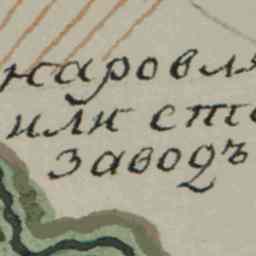 наровля
или сте
заводъ